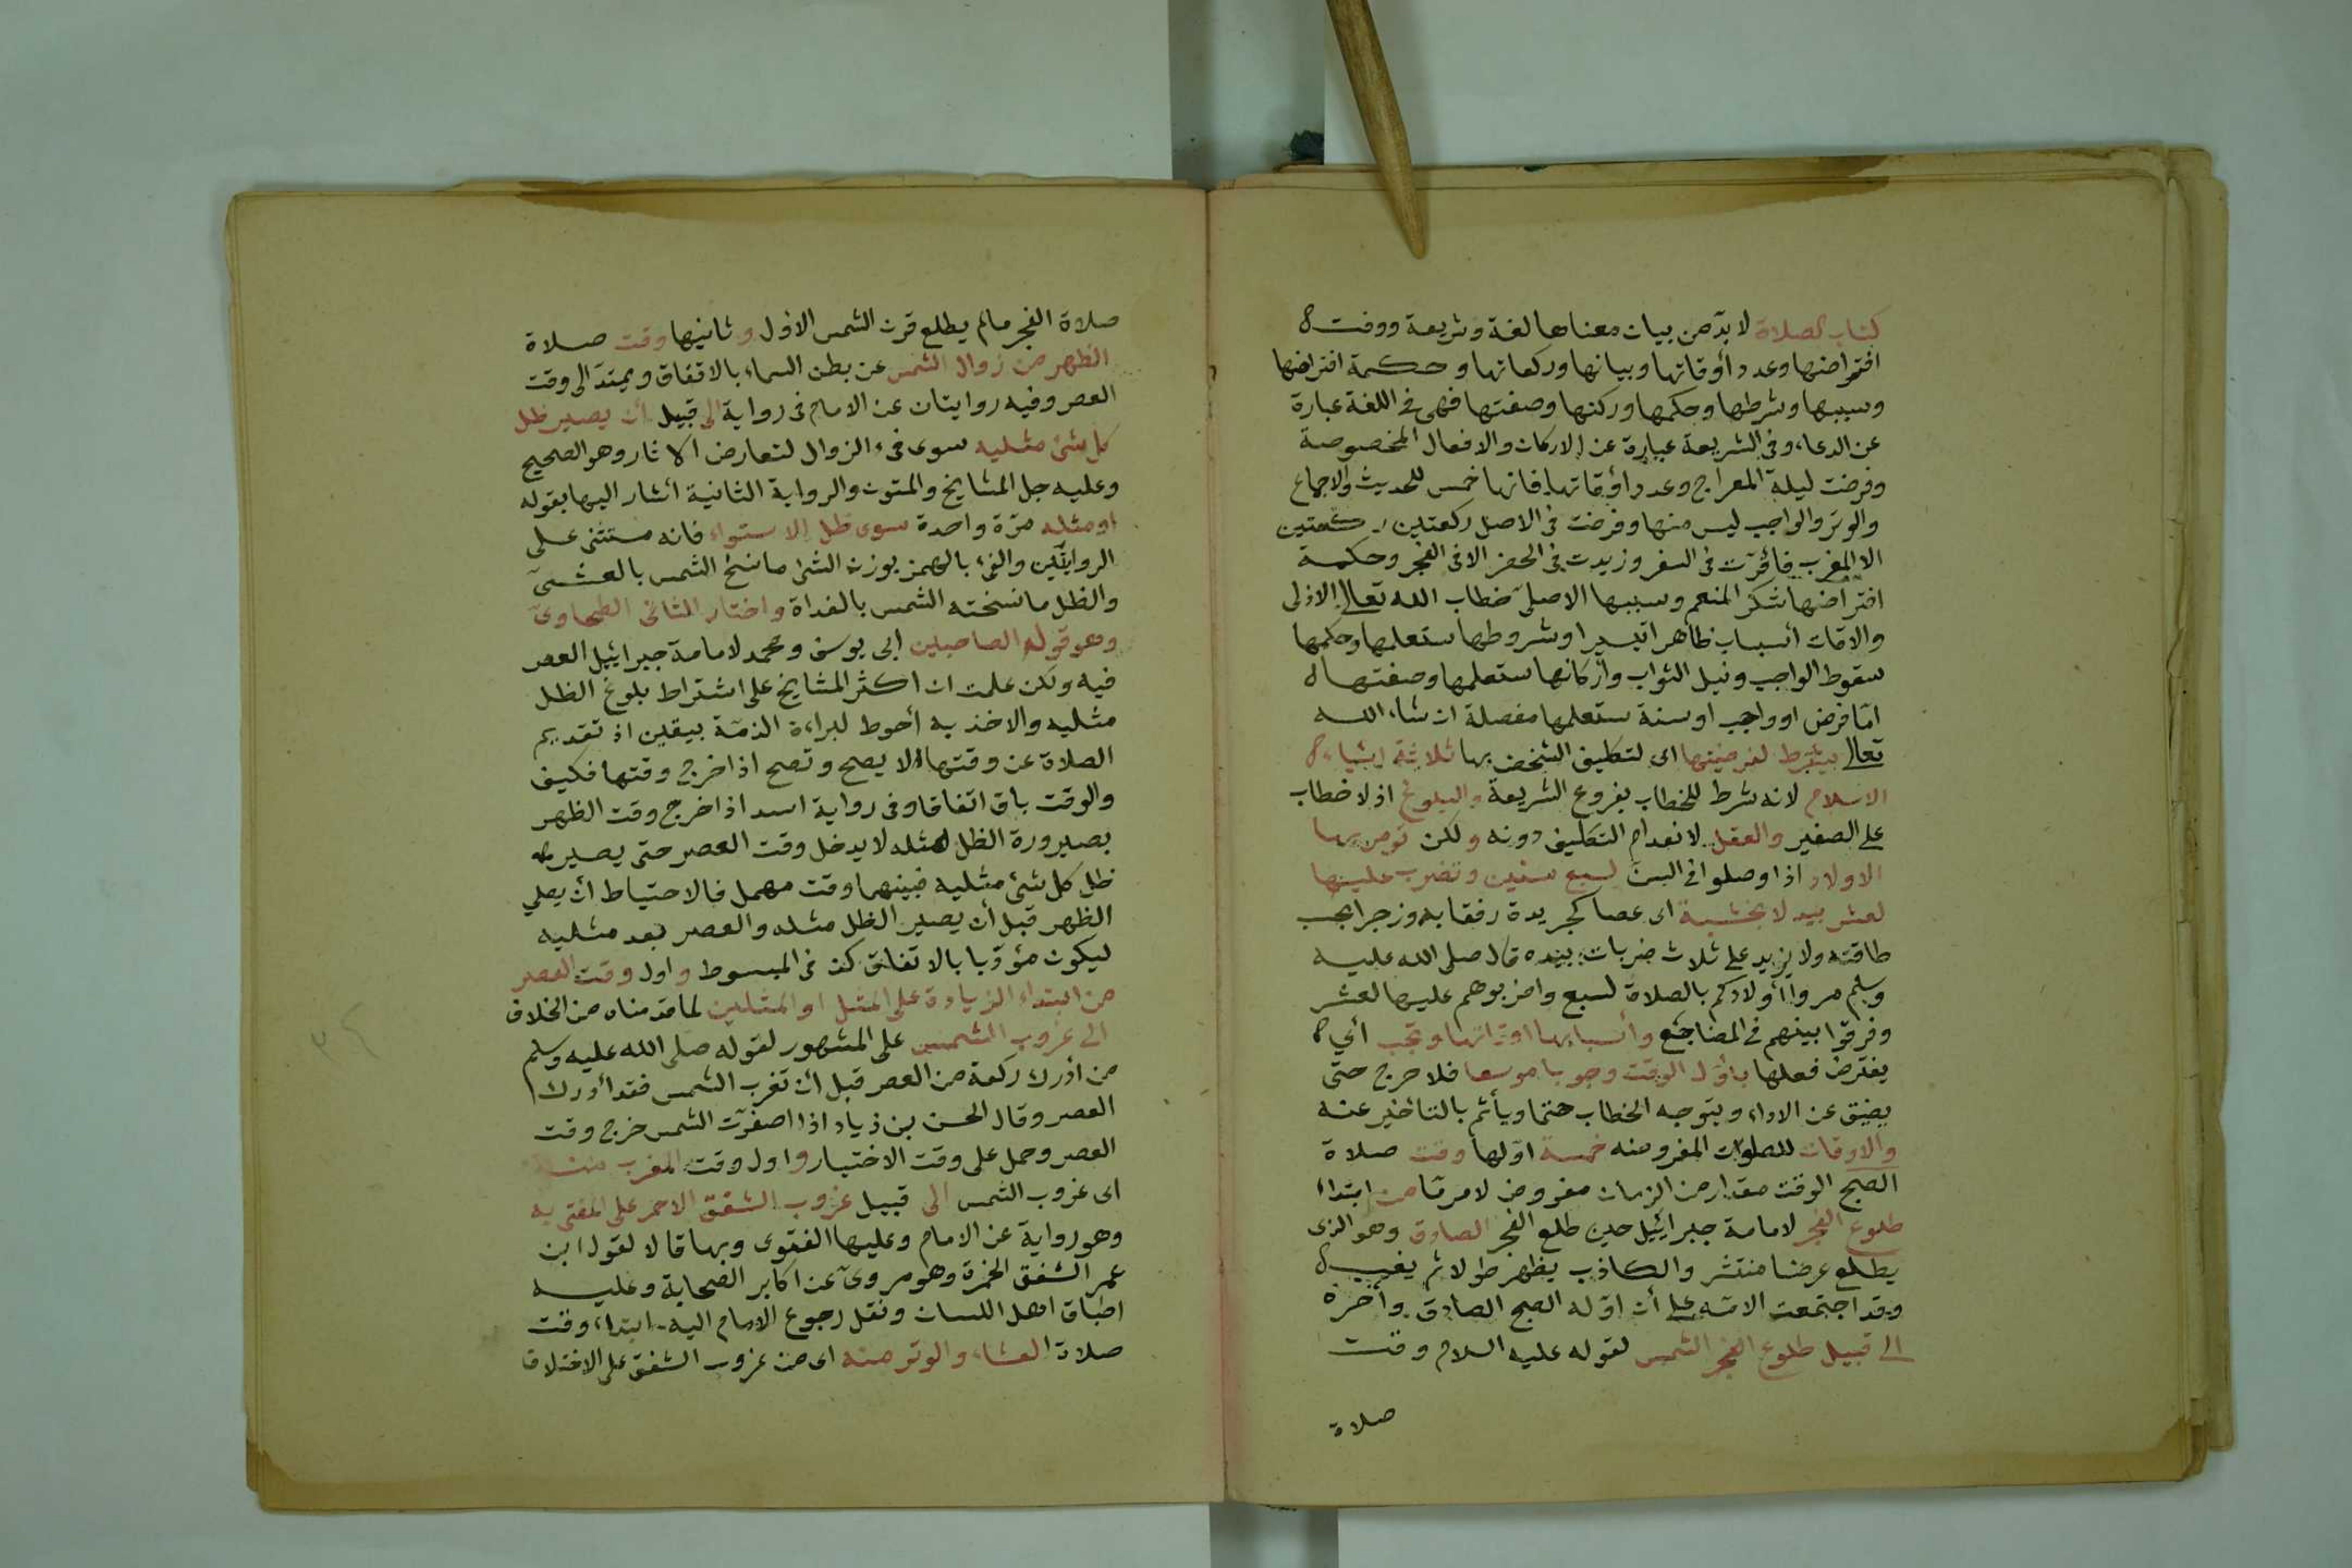 كتاب الصلاة لا بد من بيان معناها لغة وشريعة ووقت
افتراضها وعدد أوقاتها وبيانها وركعاتها وحكمة افتراضها
وسببها وشرطها وحكمها وركنها وصفتها فهى فى اللغة عبارة
عن الدعاء وفى الشريعة عبارة عن الاركان والافعال المخصوصة
وفرضت ليلة المعراج وعدد أوقاتها فانها خمس للحديث والاجماع
والوتر والواجب ليس منها وفرضت فى الاصل ركعتين ركعتين
الا المغرب فأقرت فى السفر وزيدت فى الحضر الا فى الفجر وحكمة
افتراضها شكر المنعم وسببها الاصلى خطاب الله تعالى الازلى
والاوقات أسباب ظاهرا تيسيرا وشروطها ستعلمها وحكمها
سقوط الواجب ونيل الثواب وأركانها ستعلمها وصفتها
اما فرض او واجب او سنة ستعلمها مفصلة ان شاء الله
تعالى يشترط لفرضيتها اى لتكليف الشخص بها ثلاثة اشياء
الاسلام لانه شرط للخطاب بفروع الشريعة والبلوغ اذ لا خطاب
على الصغير والعقل لانعدام التكليف دونه ولكن تومر بها
الاولاد اذا وصلوا فى السن لسبع سنين وتضرب عليها
لعشر بيد لا بخشبة اى عصا كجريدة رفقا به وزجرا بحسب
طاقته ولا يزيد على ثلاث ضربات بيده قال صلى الله عليه
وسلم مروا أولادكم بالصلاة لسبع واضربوهم عليها لعشر
وفرقوا بينهم فى المضاجع وأسبابها اوقاتها وتجب أي
يفترض فعلها بأول الوقت وجوبا موسعا فلا حرج حتى
يضيق عن الاداء ويتوجه الخطاب حتما ويأثم بالتاخير عنه
والاوقات للصلوات المفروضه خمسة اولها وقت صلاة
الصبح الوقت مقدار من الزمان مفروض لامر ما من ابتداء
طلوع الفجر لامامة جبرائيل حين طلع الفجر الصادق وهو الذى
يطلع عرضا منتشر والكاذب يظهر طولا ثم يغيب
وقد اجتمعت الامه على أن اوله الصبح الصادق وأخره
الى قبيل طلوع الفجر الشمس لقوله عليه السلام وقت
صلاة
صلاة الفجر مالم يطلع قرن الشمس الاول وثانيها وقت صلاة
الظهر من زوال الشمس عن بطن السماء بالاتفاق ويمتد الى وقت
العصر وفيه روايتان عن الامام فى رواية الى قبيل أن يصير ظل
كل شئ مثليه سوى فىء الزوال لتعارض الاثار وهو الصحيح
وعليه جل المشايخ والمتون والرواية الثانية أشار اليها بقوله
او مثله مرة واحدة سوى ظل الاستواء فانه مستثنى على
الروايتين والفىء بالهمز بوزن الشئ مانسخ الشمس بالعشى
والظل مانسخته الشمس بالغداة واختار الثانى الطحاوى
وهو قول الصاحبين ابى يوسف ومحمد لامامة جبرائيل العصر
فيه ولكن علمت ان اكثر المشايخ على اشتراط بلوغ الظل
مثليه والاخذ به أحوط لبراءة الذمة بيقين اذ تقديم
الصلاة عن وقتها لا يصح وتصح اذا خرج وقتها فكيف
والوقت باق اتفاقا وفى رواية اسد اذا خرج وقت الظهر
بصيرورة الظل مثله لا يدخل وقت العصر حتى يصير
ظل كل شئ مثليه فبينهما وقت مهمل فالاحتياط أن يصلي
الظهر قبل أن يصير الظل مثله والعصر بعد مثليه
ليكون مؤديا بالاتفاق كذ فى المبسوط واول وقت العصر
من ابتداء الزيادة على المثل او المثلين لما قدمناه من الخلاف
الى غروب الشمس على المشهور لقوله صلى الله عليه وسلم
من أدرك ركعة من العصر قبل أن تغرب الشمس فقد أدرك
العصر وقال الحسن بن زياد اذا اصفرت الشمس خرج وقت
العصر وحمل على وقت الاختيار واول وقت المغرب منه
اى غروب الشمس الى قبيل غروب الشفق الاحمر على المفتى به
وهو رواية عن الامام وعليها الفتوى وبها قالا لقول ابن
عمر الشفق الحمرة وهو مروى عن اكابر الصحابة وعليه
اطباق اهل اللسان ونقل رجوع الامام اليه ابتداء وقت
صلاة العشاء والوتر منه اى من غروب الشفق على الاختلاف